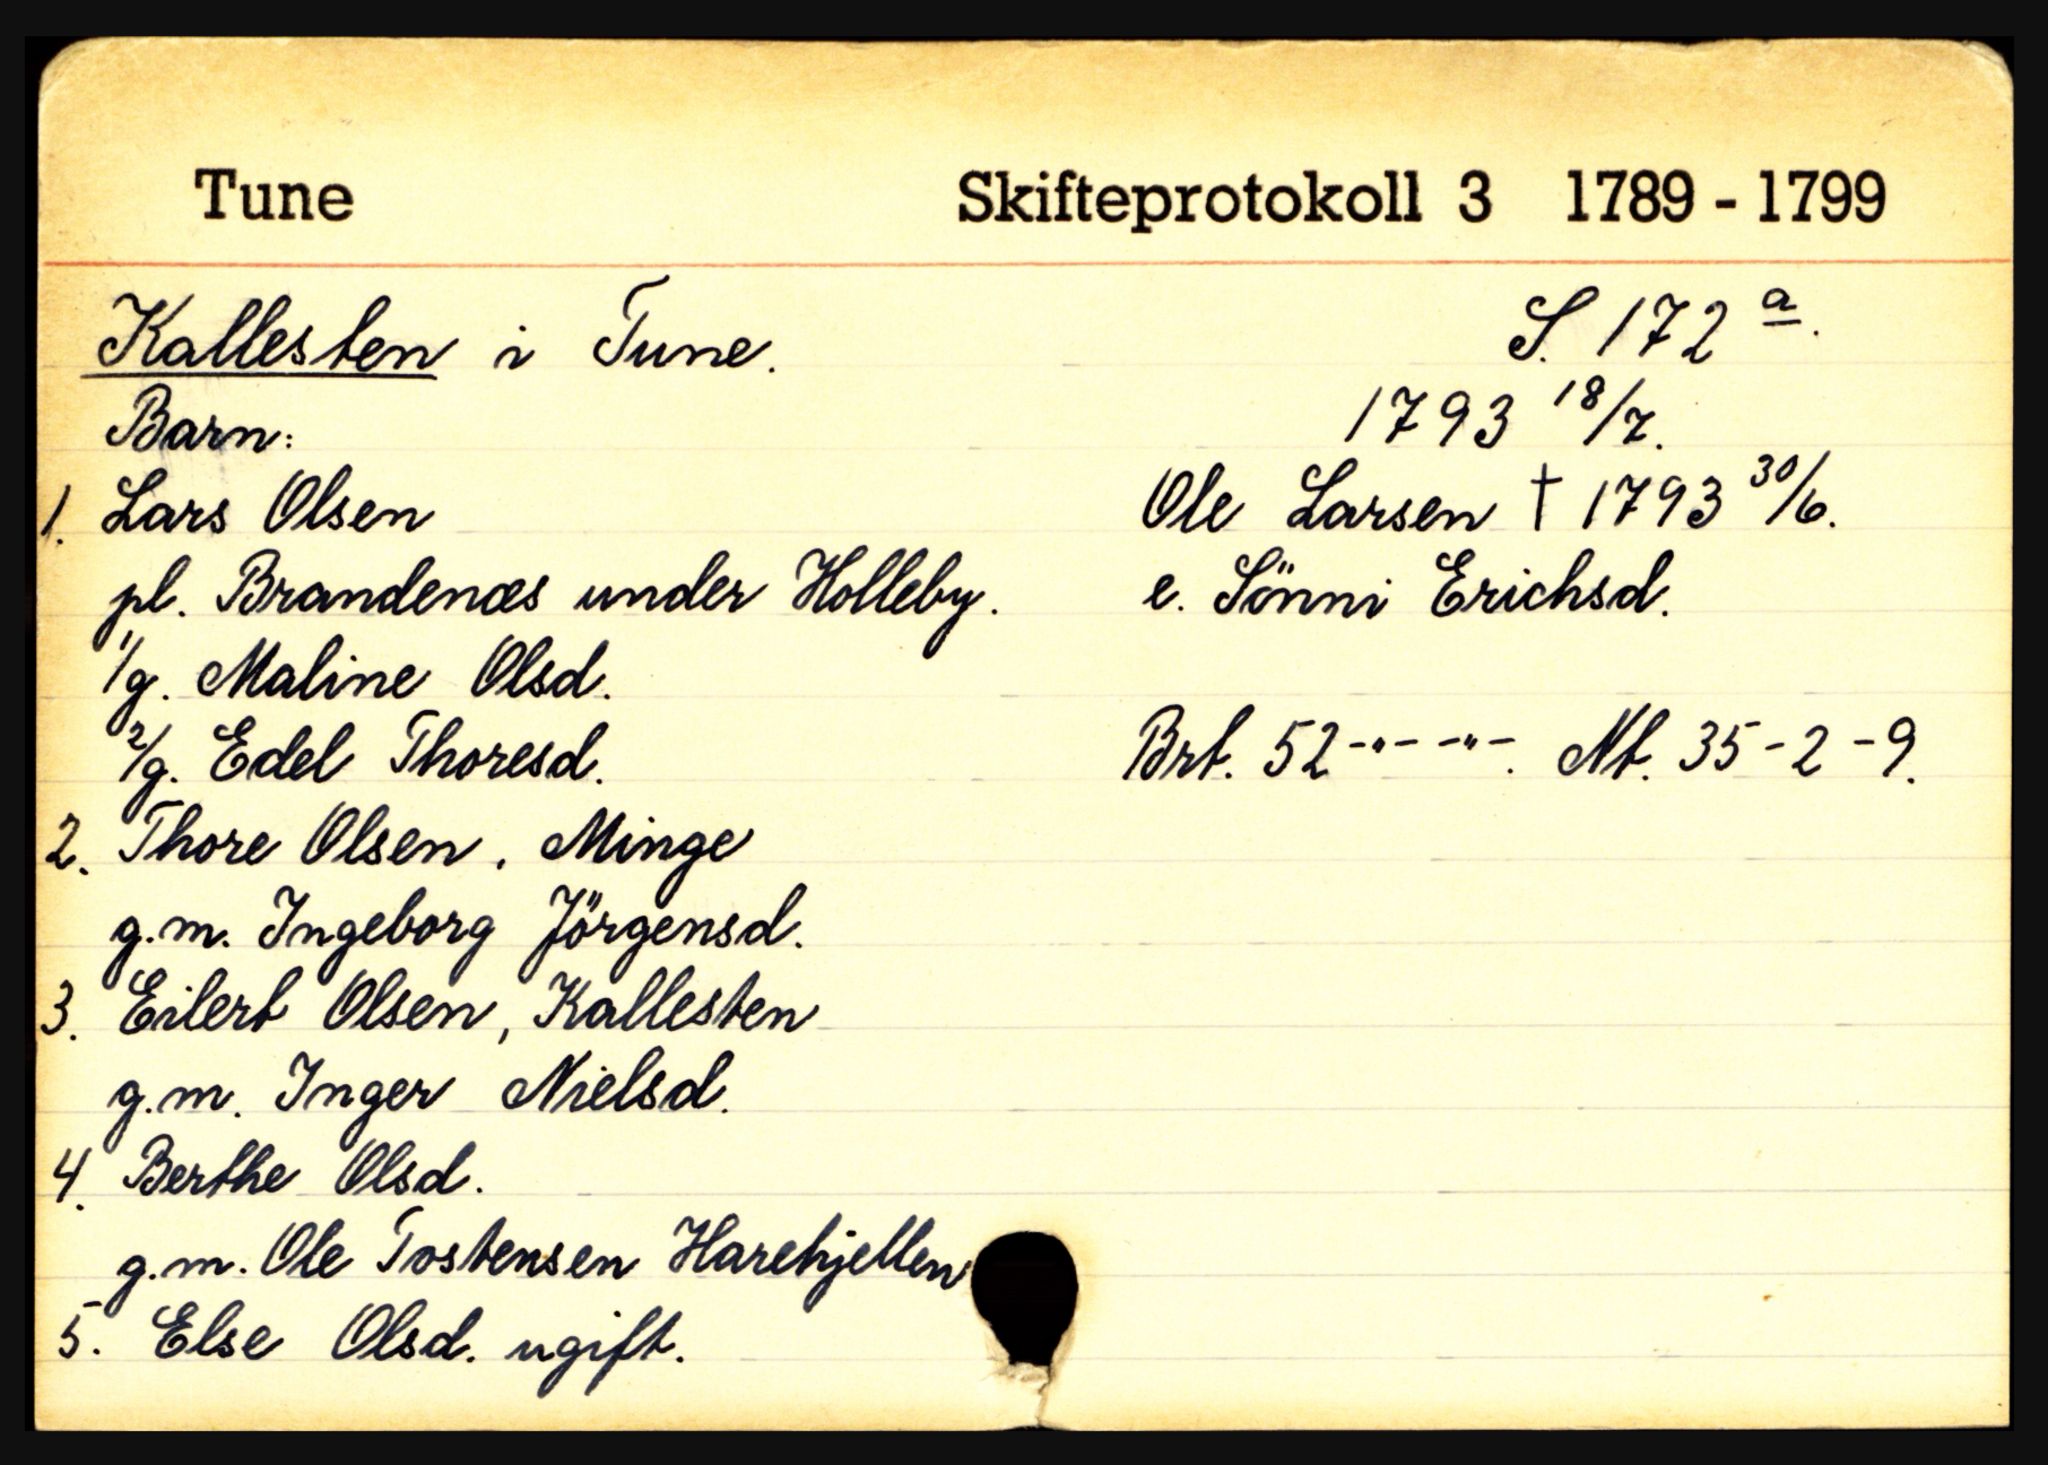 Tune Skifteprotokoll 3 1789 - 1799
Kallesten i Tune. S. 172 a.
Barn: 1793 18/7.
1. Lars Olsen Ole Larsen † 1793 30/6.
pl. Brandenæs under Holleby. e. Sönni Erichsd.
1/g. Maline Olsd.
2/g. Edel Thoresd. Brt. 52 -"- -"-. Nt. 35 - 2 - 9.
2. Thore Olsen, Minge
g.m. Ingeborg Jörgensd.
3. Eilert Olsen, Kallesten
g.m. Inger Nielsd.
4. Berthe Olsd.
g.m. Ole Tostensen Harehjellen
5. Else Olsd. ugift.